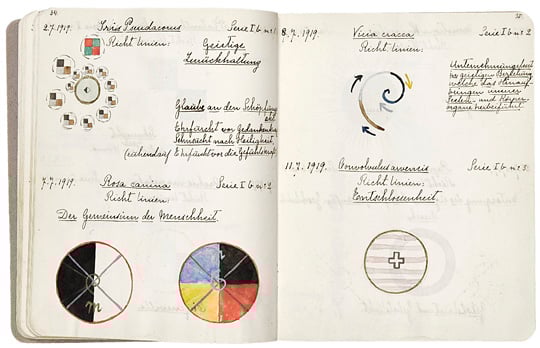 34.
2.7.1919. Iris Pseudacorus Serie I b. nr: 1
Richtlinien: Geistige
Zurückhaltung
Glaube an den Schöpfung
Ehrfurcht vor
Sehnsucht nach Heiligkeit
Ehrfurcht vor die
7.7.1919. Rosa canina Serie I b nr: 2
Richtlinien:
Der Gemeinsinn der Menschheit.
35.
8.7.1919. Vicia cracca Serie I b nr: 2
Richtlinien:
Unternehmungslust
in geistigen Beziehung
welche das
neuer
Seelen- und Körper
organe herbeiführt
11.7.1919. Convolvulus arvensis Serie I b nr: 3
Richtlinien:
Entschlossenheit